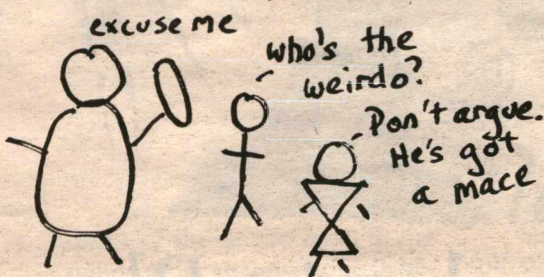 excuse me
who's the
weirdo?
Don't argue.
He's got
a mace